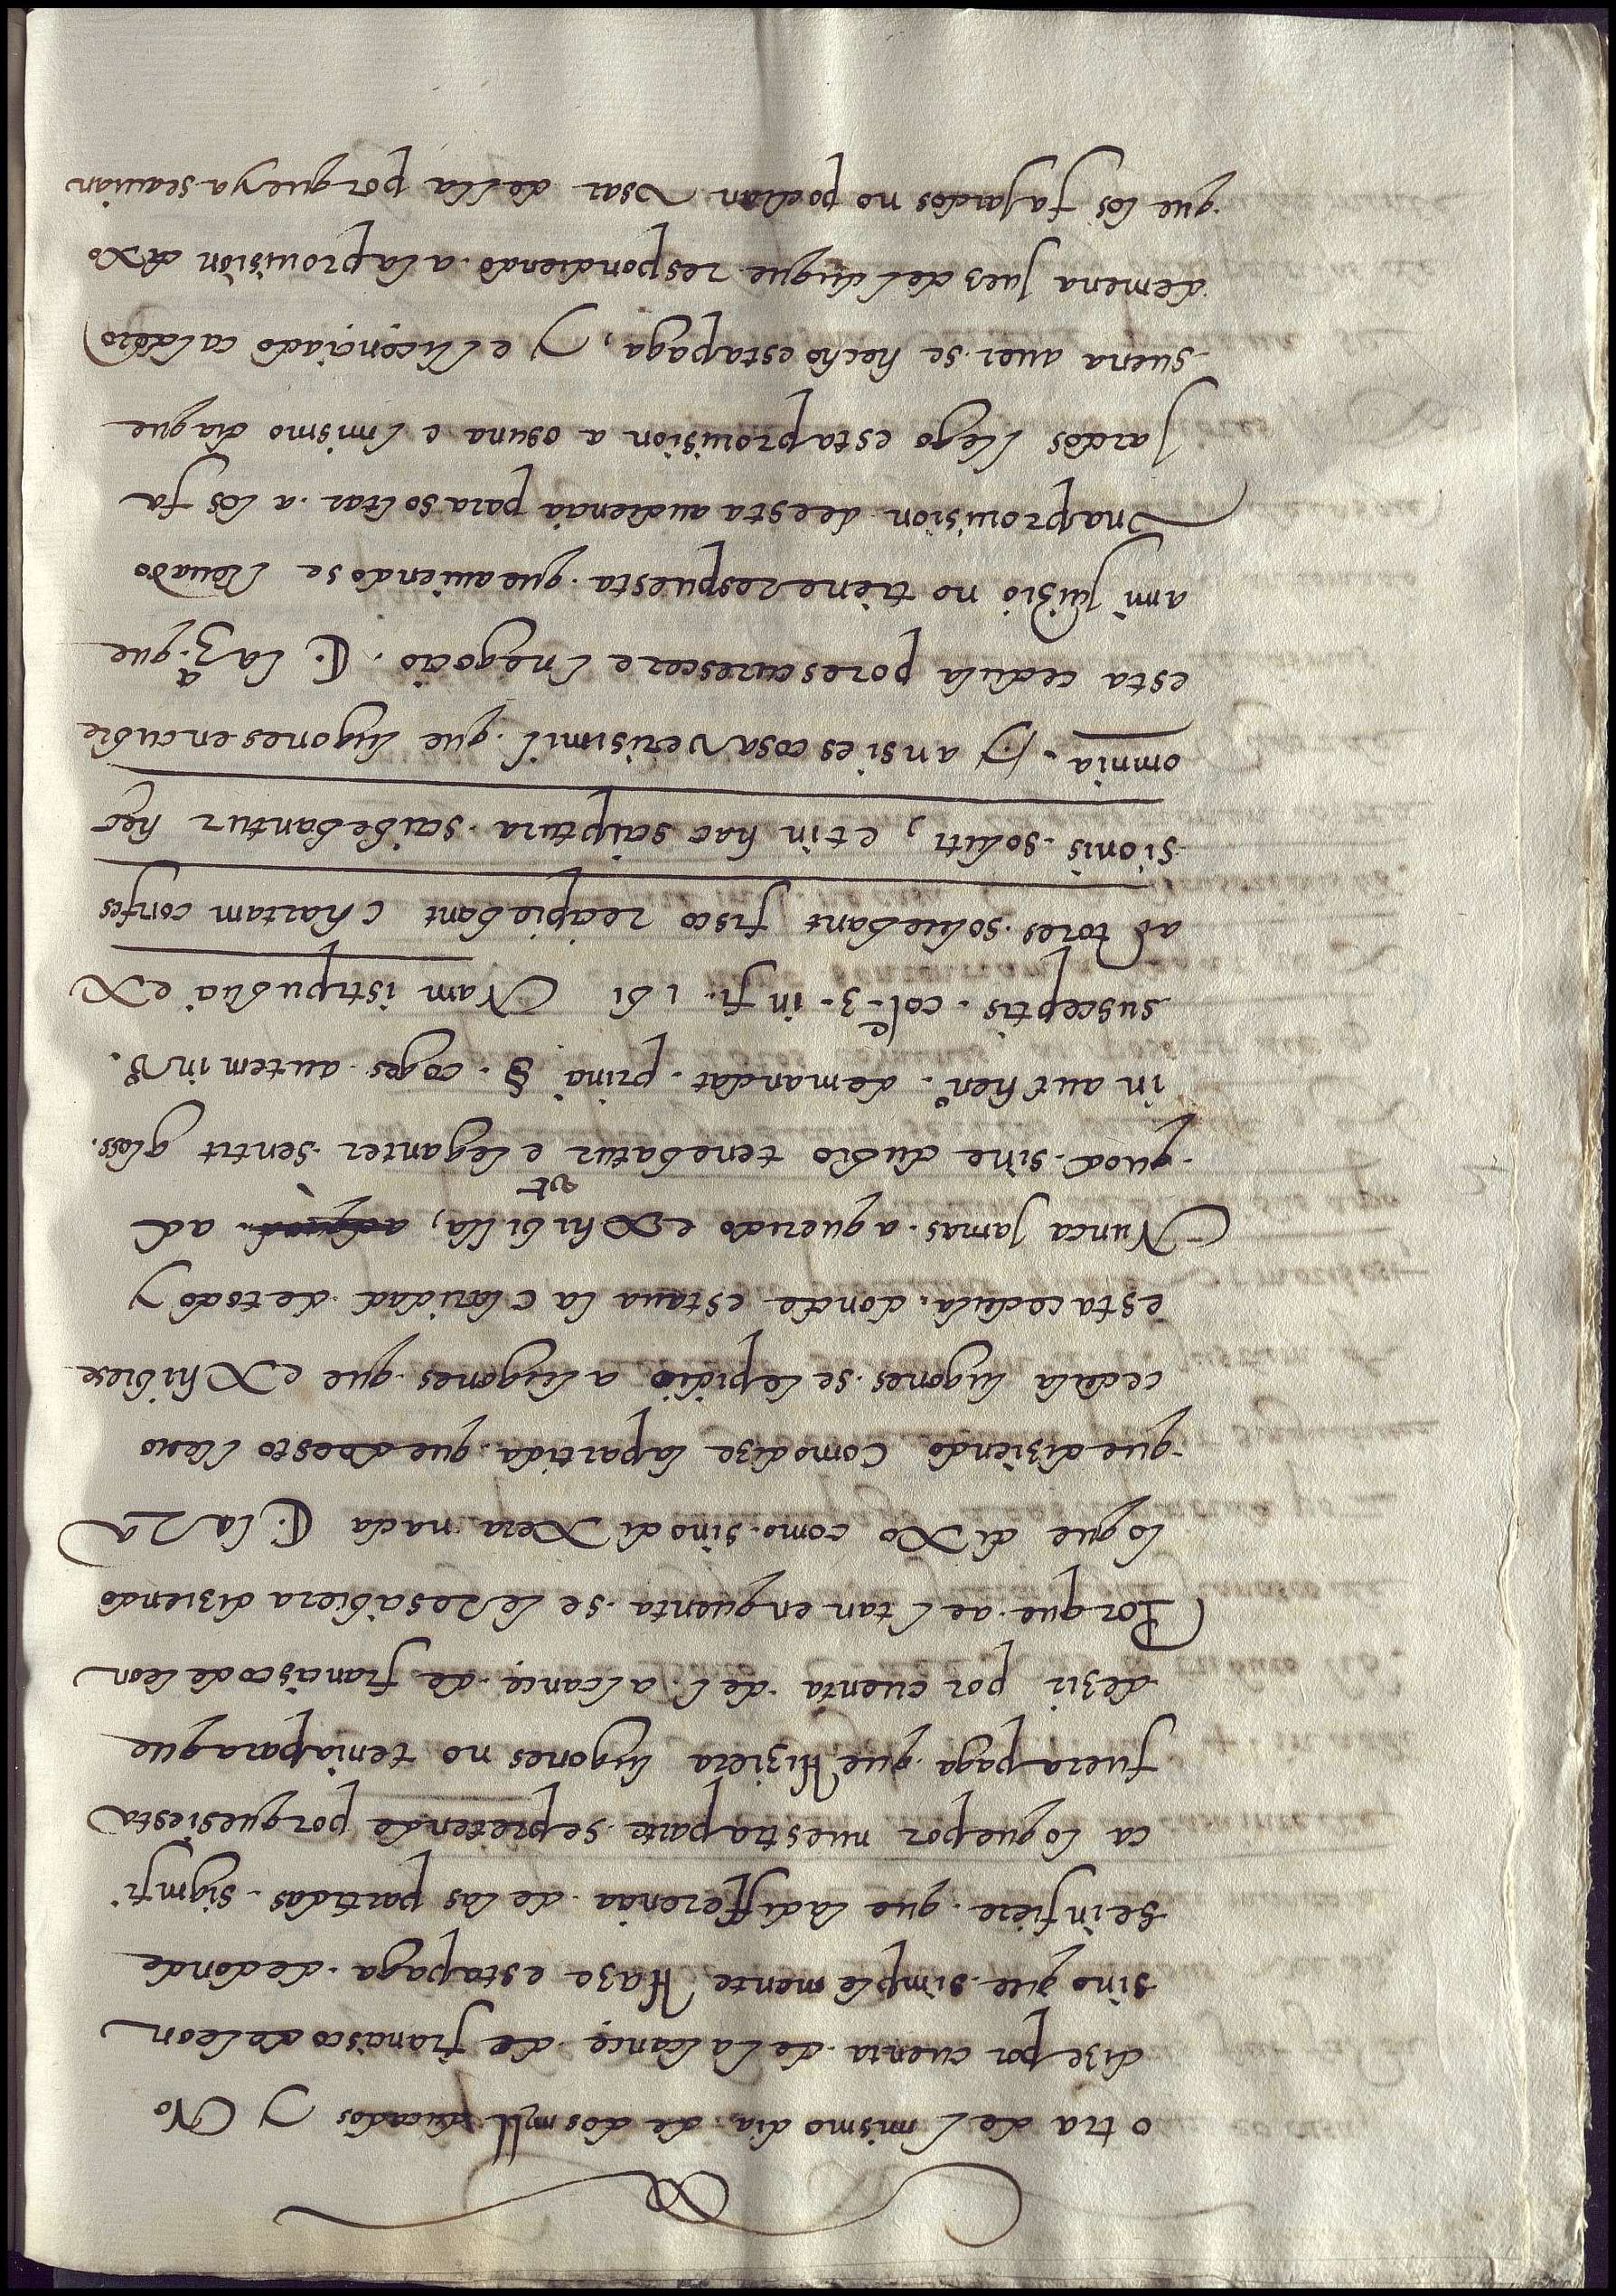 otra del mismo dia de dos mill ducados y No
dize por cuenta del alcançe de francisco de leon
sino que simplemente Haze esta paga de donde
se infiere que la differencia de las partidas signifi
ca lo que por nuestra parte se pretende porque si esta
fuera paga que Hiziera lugones no tenia para que
dezir por cuenta del alcançe de francisco de leon
Porque al tan en quenta se le resabiera diziendo
lo que dixo como sino dixera nada ₵. la 2a
que diziendo como dize la partida que de esto lleuo
cedula lugones se le pidio a lugones que exhibiese
esta cedula donde estaua la claridad de todo y
Nunca jamas a querido exhibilla, vt ad
quod sine dubio tenebatur eleganter sentit glos.
in authen. de mandat. prinꝰ § coges autem in v.
susceptis. col. 3. in fi. ibi Nam isti publici ex
actores soluebant fisco recipiebant chartam confes
sionis soluti, et in hac scriptura scribebantur hec
omnia. y ansi es cosa verisimil que lugones encubre
esta cedula por escurescer el negocio. ₵. la 3.a que
a mi juizio no tiene respuesta que auiendose lleuado
Vna prouision de esta audiencia para soltar a los fa
jardos llego esta prouision a osuna el mismo dia que
suena auer se hecho esta paga, y el licenciado caldero
de mena juez del duque respondiendo a la prouision dixo
que los fajardos no podian vsar della porque ya se auian